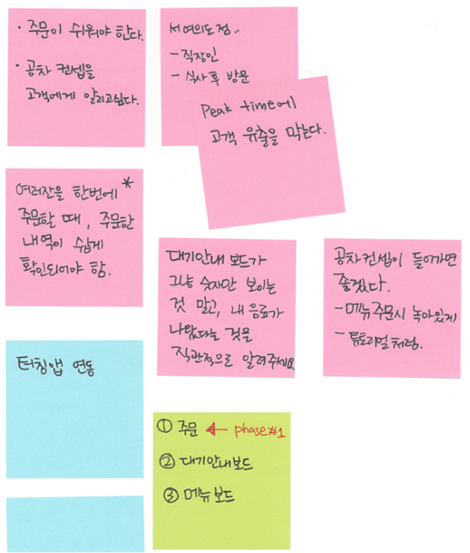 · 주문이 쉬워야 한다.
· 공차 컨셉을
고객에게 알리고싶다.
서여의도점..
- 직장인
- 식사 후 방문
Peak time에
고객 유출을 막는다.
여러잔을 한번에 *
주문할 때, 주문한
내역이 쉽게
확인되어야 함.
대기안내 보드가
그냥 숫자만 보이는
것 말고, 내 음료가
나왔다는 것을
직관적으로 알려주세요
공차컨셉이 들어가면
좋겠다.
- 메뉴 주문시 녹아있게
- 튜토리얼처럼.
터칭앱 연동
① 주문 ← phase#1
② 대기안내보드
③ 메뉴보드